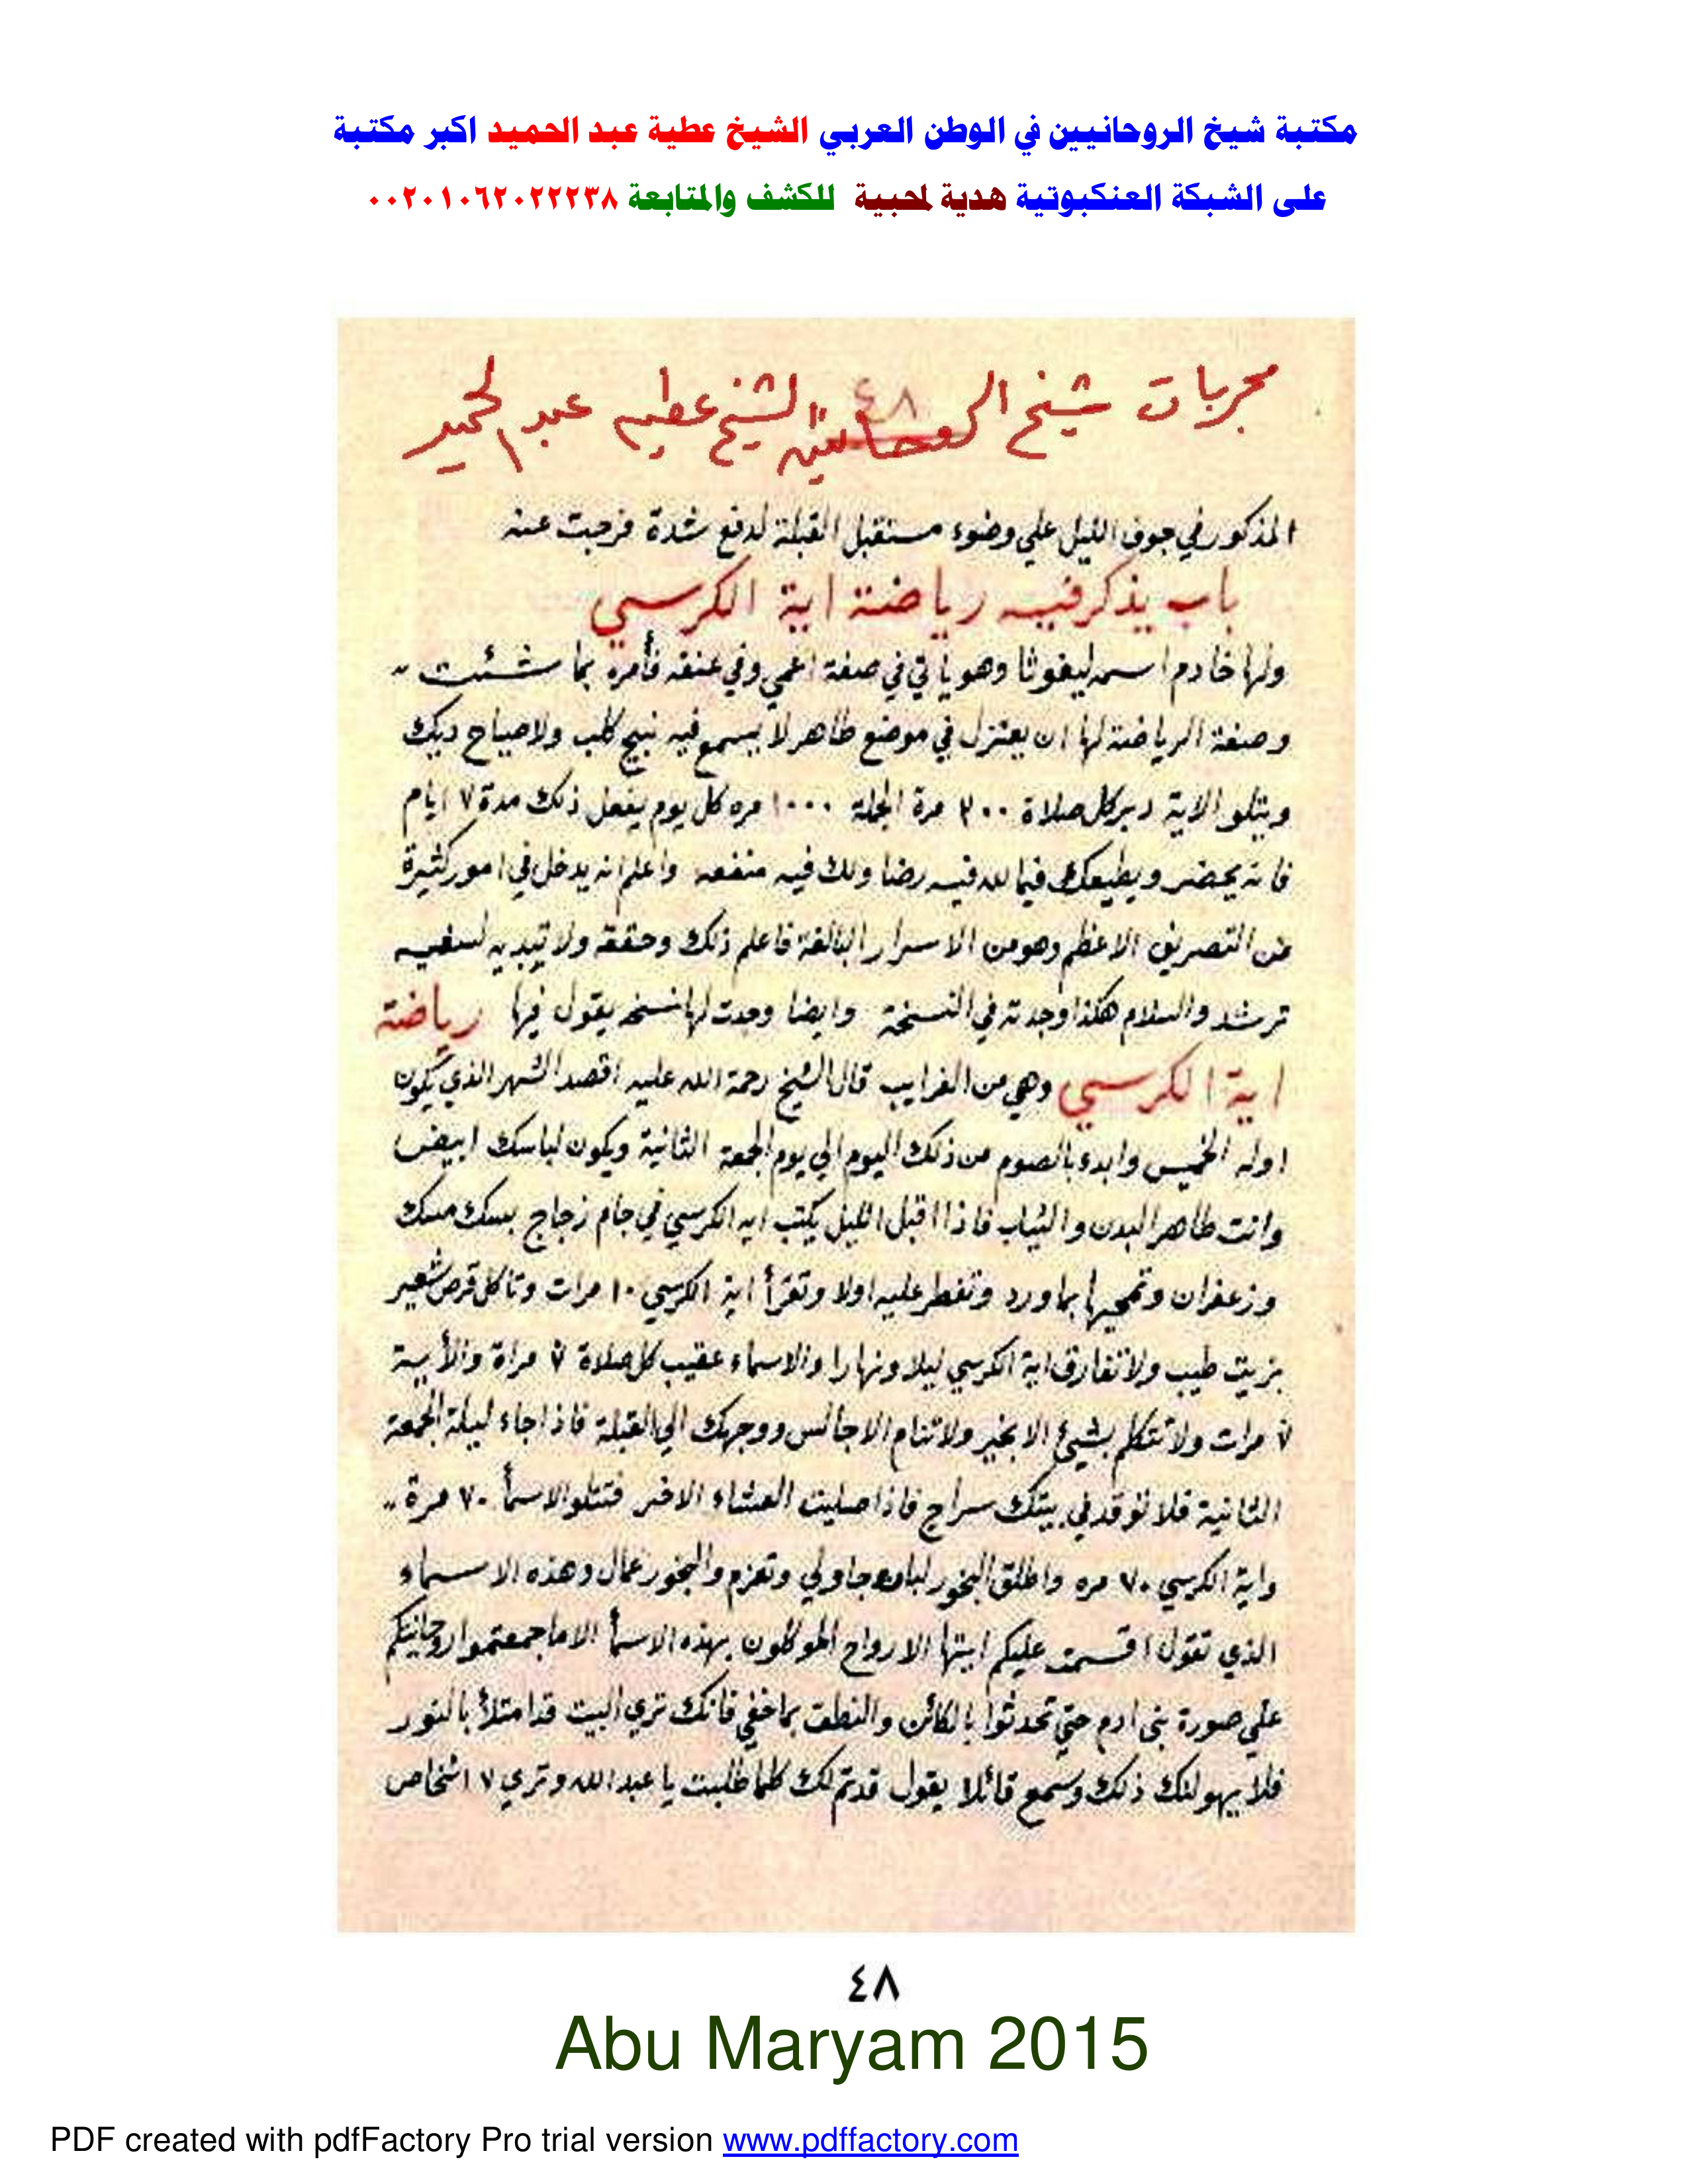 مكتبة شيخ الروحانيين في الوطن العربي الشيخ عطية عبد الحميد اكبر مكتبة
على الشبكة العنكبوتية هدية لمحبية للكشف والمتابعة ٠٠٢٠١٠٦٢٠٢٢٢٣٨
٤٨
مجربات شيخ الروحانيين الشيخ عطيه عبد الحميد
المذكور في جوف الليل علي وضوء مستقبل القبلة لدفع شدة فرجت عنه
باب يذكر فيه رياضة اية الكرسي
ولها خادم اسمه ليغوثا وهو ياتي في صفة اعمي وفي عنقه فأمره بما شئت
وصفة الرياضة لها ان يعتزل في موضع طاهر لا يسمع فيه نبيح كلب ولا صياح ديك
ويتلو الاية دبر كل صلاة ٢٠٠ مرة الجملة ١٠٠٠ مره كل يوم يفعل ذلك مدة ٧ ايام
فانه يحضر ويطيعك فيما لله فيه رضا ولك فيه منفعه واعلم انه يدخل في امور كثيرة
من التصريف الاعظم وهو من الاسرار البالغة فاعلم ذلك وحققه ولا تبديه لسفيه
ترشد والسلام هكذا وجدته في النسخة وايضا وجدت لها نسخه يقول فيها رياضة
اية الكرسي وهي من الغرايب قال الشيخ رحمة الله عليه اقصد الشهر الذي يكون
اوله الخميس وابدء بالصوم من ذلك اليوم الي يوم الجمعة الثانية ويكون لباسك ابيض
وانت طاهر البدن والثياب فاذا اقبل الليل يكتب ايه الكرسي في جام زجاج بسك مسك
وزعفران وتمحيها بماورد وتفطر عليه اولا وتقرأ اية الكرسي ١٠ مرات وتاكل قرص شعير
بزيت طيب ولا تفارق اية الكرسي ليلا ونهارا والاسماء عقيب كل صلاة ٧ مراة والأية
٧ مرات ولا تتكلم بشيئ الا بخير ولا تنام الا جالس ووجهك الي القبلة فاذا جاء ليلة الجمعة
الثانية فلا توقد في بيتك سراج فاذا صليت العشاء الاخر فتتلو الاسمأ ٧٠ مرة
واية الكرسي ٧٠ مره واطلق البخور لبان جاولي وتعزم والبخور عمال وهذه الاسماء
الذي تقول اقسمت عليكم ايتها الارواح الموكلون بهذه الاسمأ الاما جمعتموا روحانيتكم
علي صورة بني ادم حتي تحدثوا بالكائن والنطق بما خفي فانك تري البيت قد امتلأ بالنور
فلا يهولنك ذلك وسمع قائلا يقول قد تم لك كلما طلبت يا عبد الله وتري ٧ اشخاص
٤٨
Abu Maryam 2015
PDF created with pdfFactory Pro trial version www.pdffactory.com